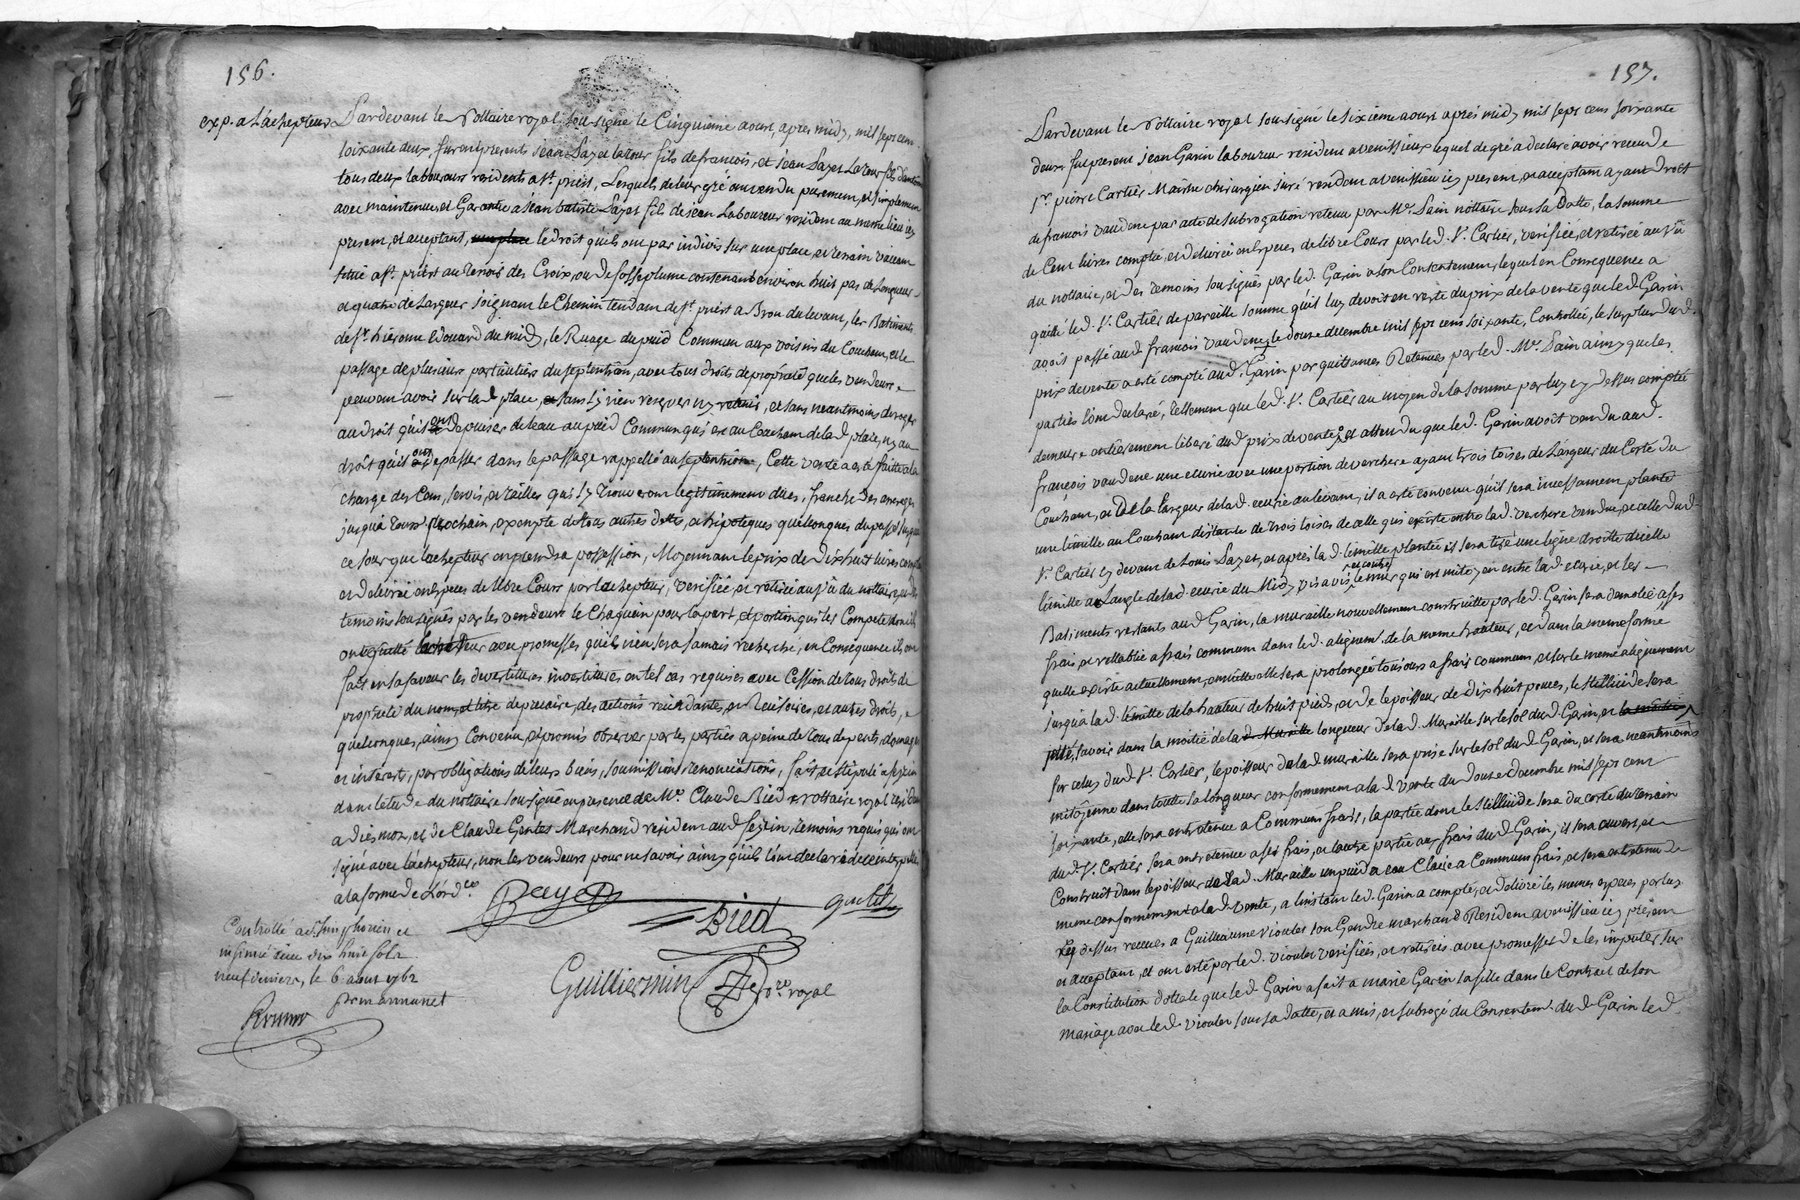 156.
exp. a Lachepteur
Pardevant le Nottaire royal sousigné le Cinquieme aoust apres midy, mil sept cen
soixante deux, furent presents jean Payet Latour fils de francois, et jean Payet Latour fils d'antoine
tous deux laboureurs residents a st. priest, Lesquels de leur gré ont vendu purement, et simplement
avec maintenue, et Garantie a jean batiste Payet fils de jean Laboureur resident au meme lieu icy
present, et acceptant, le droit qu'ils ont par indivis sur une place, et terrain vaccant
situé a st. priest au terroir des Croix, ou de fosseplume contenant environ huit pas de Longueur
et quatre de Largeur joignant le Chemin tendant de st. priest a Bron du levant, les Batiments
de sr. hierome Edouard du midy, le Ruage du puid Commun aux voisins du Couchant, et le
passage de plusieurs particuliers du septentrion, avec tous droits de proprieté que les vendeurs
peuvent avoir sur lad place, sans s'y rien reserver ny retenir, et sans neantmoins deroger
au droit qu'ils ont de puiser de leau au puid Commun qui est au Couchant de lad place, ny au
droit qu'ils ont de passer dans le passage rappellé au septentrion, Cette vente a esté faitte a la
charge des Cens, servis, et tailles qui s'y trouveront legitimement dües, franche des arrerages
jusqu'a Tours prochain, exempte de tous autres dettes, et hipoteques quelconques du passé jusqu'a
ce jour que lachepteur en prendra possession, Moyennant le prix de dixhuit livres comptée
et delivrée en Especes de libre Cours par lachepteur, verifiée, et retirée au vû du nottaire, et des
temoins sousignés par les vendeurs le Chaquun pour la part, et portion qui les Compete dont ils
ont quitté lachepteur avec promesses qu'il n'en sera jamais recherché, en Consequence ils ont
fait en sa faveur les devestitures investitures, en tel cas requises avec Cession de tous droits de
proprieté du nom, et titre de precaire, des actions rescindantes, et Rescisoires, et autres droits,
quelconques, ainsy convenu, et promis observer par les parties a peine de tous depents, domages
et interests, par obligations de leurs biens, soumissions, renonciations, fait, et stipulé a feyzin
dans letude du nottaire sousigné en presence de Me. Claude Bied nottaire royal resident
a diesmoz, et de Claude Gentes Marchand resident aud feyzin, temoins requis qui ont
signé avec lachepteur, non les vendeurs pour ne savoir ainsy qu'ils l'ont declaré de ce interpellés
a la forme de L'ord.ce
Payet
Bied
Guilliermin
No.re royal
Controllé a st. Simphorien et
insinué receu dix huit sols
neuf deniers, le 6 aout 1762
157.
Pardevant le Nottaire royal sousigné le sixieme aoust apres midy mil sept cens soixante
deux fut present jean Garin laboureur resident a venissieux lequel de gré a declaré avoir receu de
sr. pierre Cartier Maitre chirurgien juré resident a venissieu icy present, et acceptant ayant droit
de francois vaudene par acte de subrogation retenu par Me. Dain nottaire sous sa Datte, la somme
de Cent livres comptée, et delivrée en Especes de libre Cours par led. Sr. Cartier, verifiée, et retirée au vû
du nottaire, et des temoins sousignés par led. Garin a son Contentement, lequel en Consequence a
quitté led. Sr. Cartier de pareille somme qu'il luy devoit en reste du prix de la vente que led. Garin
avoit passé aud francois vaudene, le douze decembre mil sept cens soixante, Controllée, le surplus dud.
prix de vente a esté compté aud. Garin par quittances Retenues par led. Me. Dain ainsy que les
parties l'ont declaré, tellement que led. Sr. Cartier au moyen de la somme par luy cy dessus comptée
demeure entierement liberé dud prix de vente, et attendu que led. Garin avoit vendu aud.
francois vaudene une ecurie avec une portion de verchere ayant trois toises de Largeur du Corté du
Couchant, et de la largeur de lad. ecurie au levant, il a esté convenu qu'il sera incessament planté
une limitte au Couchant distante de trois toises de celle qui existe entre lad. verchere vendue, et celle dud
Sr. Cartier cy devant de Louis Payet, et apres lad. limitte plantée il sera tiré une ligne droitte dicelle
limitte a langle de lad. ecurie du Midy vis a vis le mur qui est mitoyen entre lad. ecurie, et les
Batiments restants aud Garin, la muraille nouvellement construitte par led. Garin sera demolie a ses
frais et rettablie a frais commun dans led. alignemt. de la meme hauteur, et dans la meme forme
quelle existe actuellement, ensuitte elle sera prolongée toujours a frais communs, et sur le meme alignement
jusqu'a lad. limitte de la hauteur de huit pieds, et de lepoisseur de dixhuit pouces, le stellicide sera
jetté, savoir dans la moitié de la longueur de lad. Muraille sur le sol dud Garin, et
sur celuy dud Sr. Cartier, lepoisseur de lad muraille sera prise sur le sol dud Garin, et sera neantmoins
mitoyenne dans toutte sa longueur conformement a lad vente du douze decembre mil sept cent
soixante, elle sera entretenue a Communs frais, la partie dont le stellicide sera du corté du terrain
dud. Sr. Cartier sera entretenue a ses frais, et lautre partie aux frais dud Garin, il sera ouvert, et
Construit dans lepoisseur de lad. Muraille un puid a eau Claire a Communs frais, et sera entretenu de
meme conformement a lad. vente, a linstant led. Garin a compté, et deliвré les memes especes par luy
cy dessus receues a Guilleaume vioulet son Gendre marchand Resident a venissieu icy present
et acceptant, et ont esté par led. vioulet verifiées, et retirées avec promesses de les imputer sur
la Constitution dottale que led Garin a fait a marie Garin sa fille dans le Contrait de son
mariage avec led vioulet sous sa datte, et a mis, et subrogé du Consentemt. dud Garin led